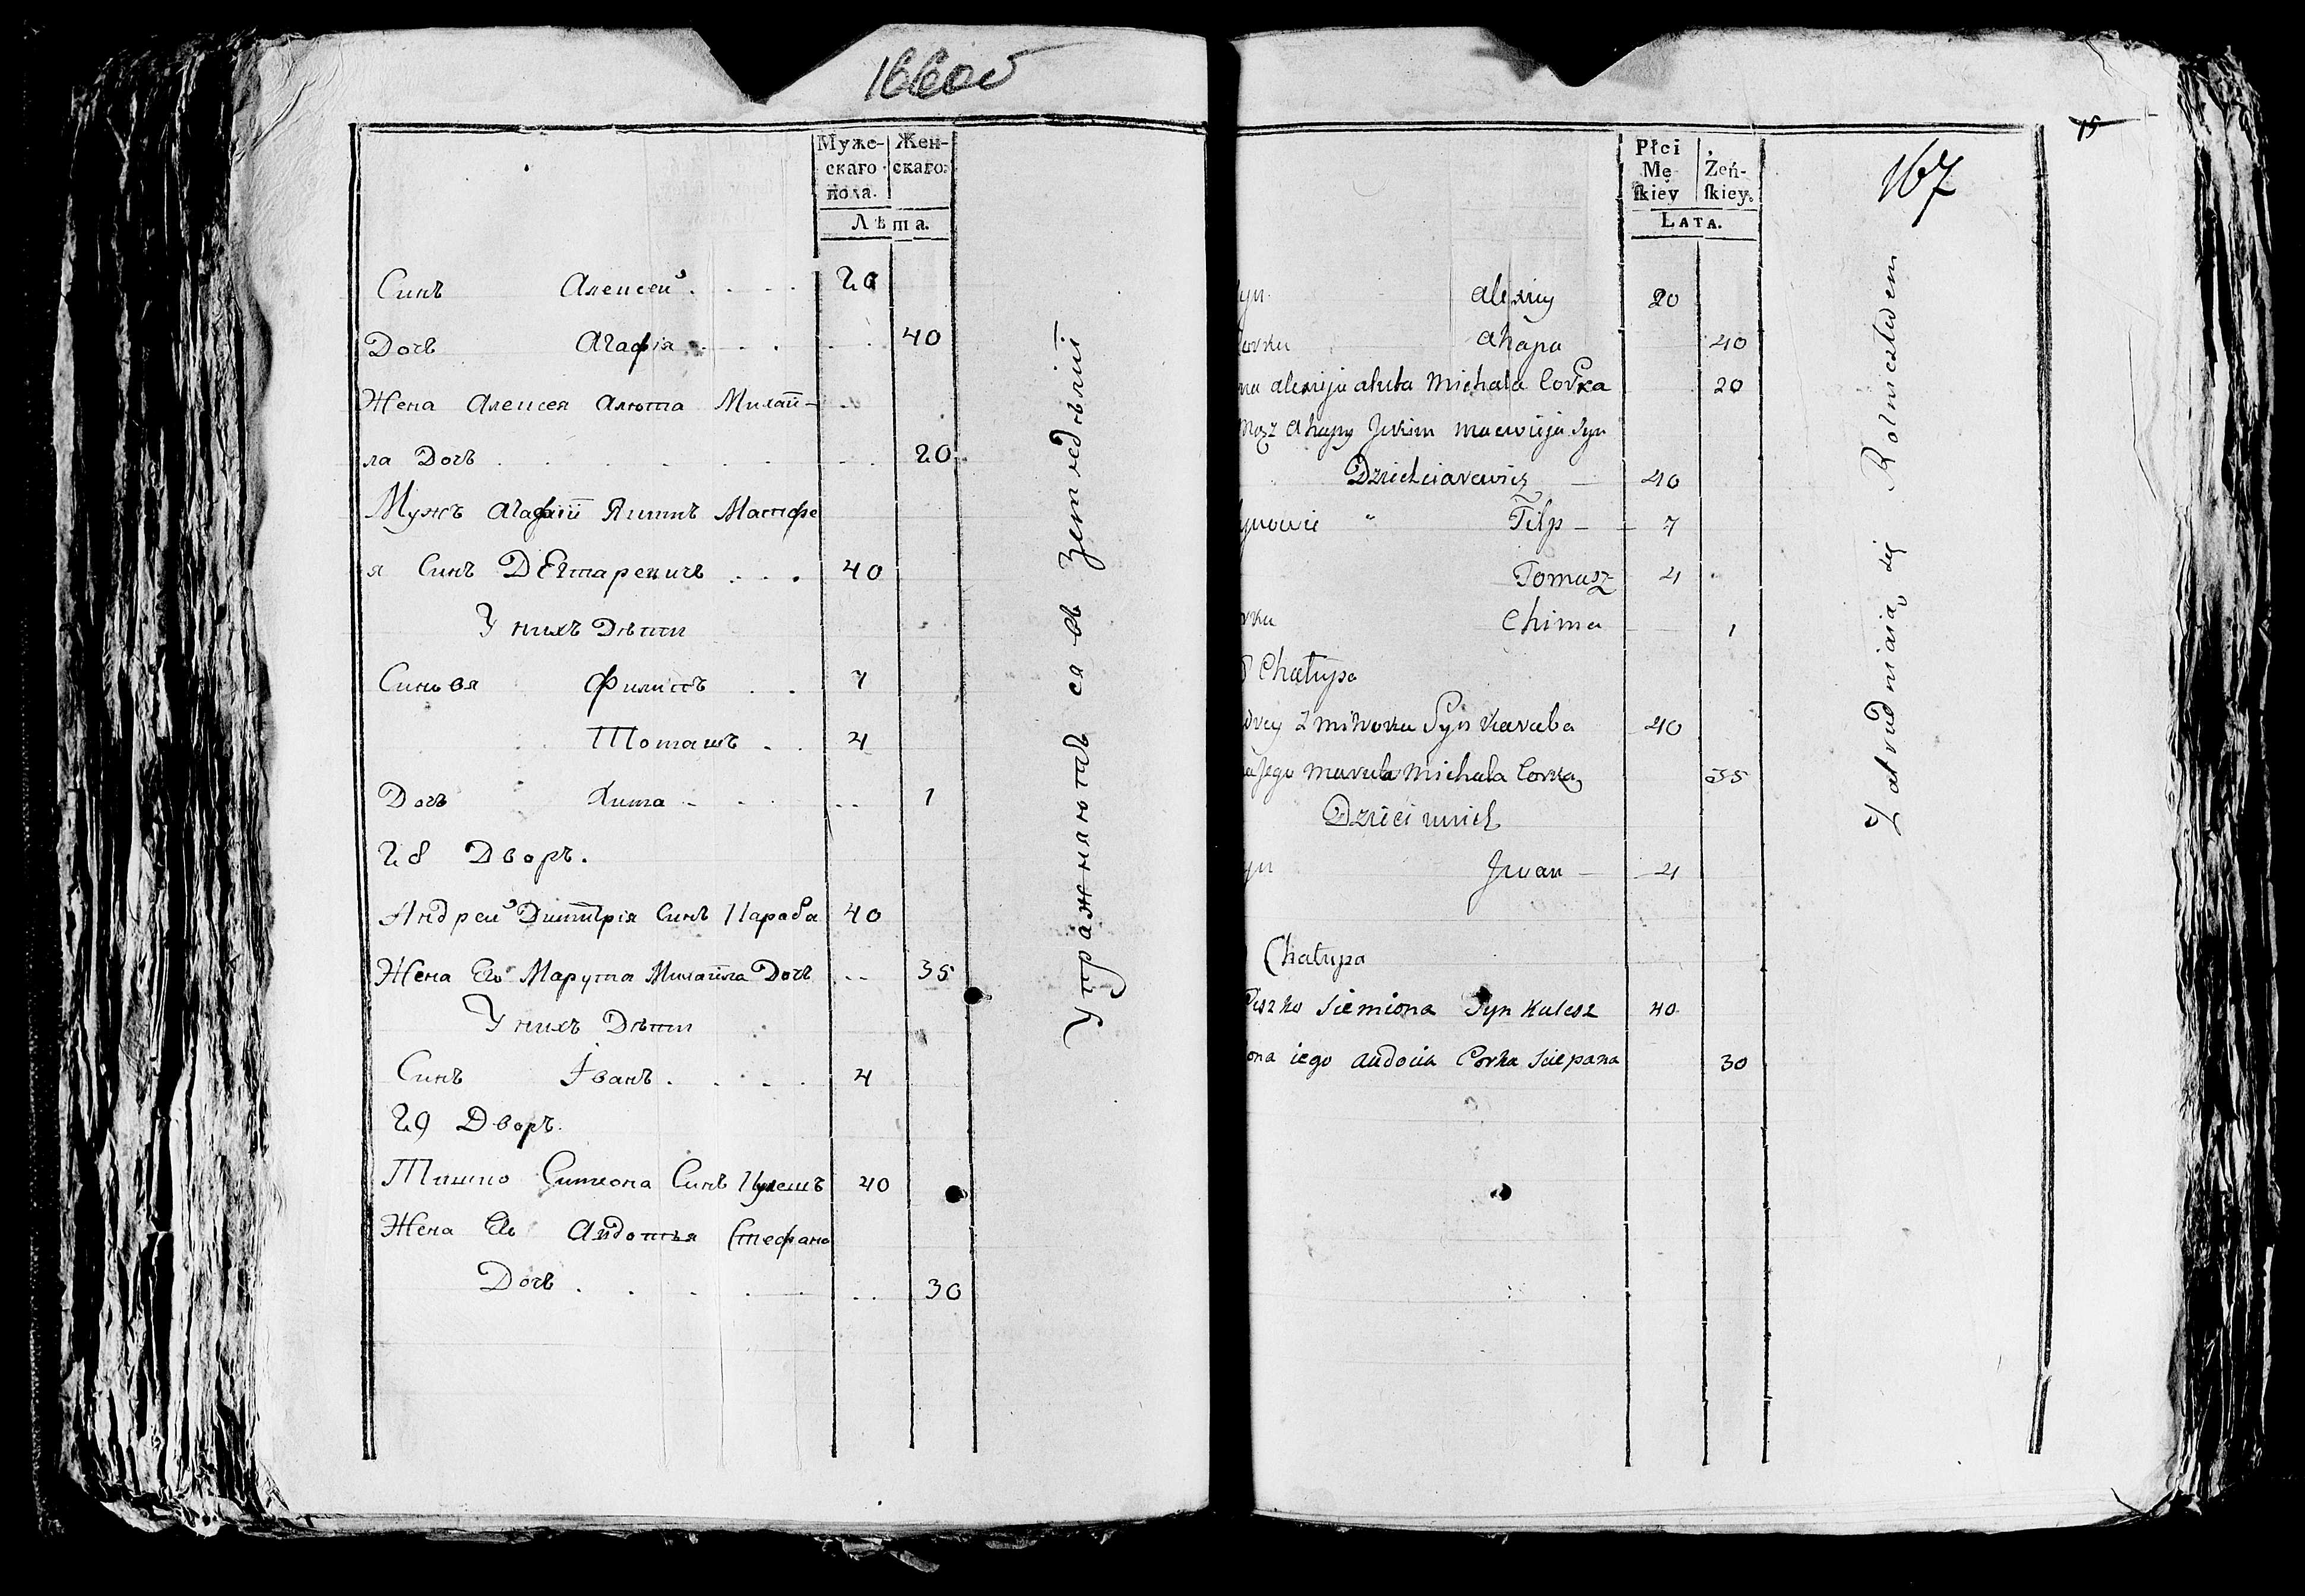 166об
Муже-
скаго
пола.
Жен-
скаго.
Лѣта.
Синъ Алексей . . . . 20
Дочъ Агафія . . . . . 40
Жена Алексея Алюта Михай-
ла Дочъ . . . . . . . 20
Мужъ Агафіи Якимъ Матфе
я Синъ Дегтаревичъ . . . 40
У нихъ Дѣти
Синовя Филипъ . . 7
Томашъ . . 4
Дочъ Хима . . . . 1
28 Дворъ.
Андрей Димитрія Синъ Караба 40
Жена Его Марута Михайла Дочъ . . 35
У нихъ Дѣти
Синъ Іванъ . . . . 4
29 Дворъ.
Тишко Симеона Синъ Кулешъ 40
Жена Его Авдотья Стефана
Дочъ . . . . . . . 30
Упражняютъ ся въ
15
167
Płci
Mę
ſkiey
Żeń-
ſkiey.
LATA.
yn Alexiey 20
Corka Ahapa 40
na Alexieja Aluta Michała Corka 20
Mąz Ahapy Jakim Macwieja Syn
Dziehciarewicz 40
ynowie " Filip 7
Tomasz 4
rka Chima 1
8 Chałupa
drey Zmitroka Syn Karaba 40
a Jego Maruta Michała Corka 35
Dzieci u nich
yn Jwan 4
Chałupa
iszko Siemiona Syn Kulesz 40
ona iego Audocia Corka Sciepana 30
Zatrudniaią się Rolnictwem